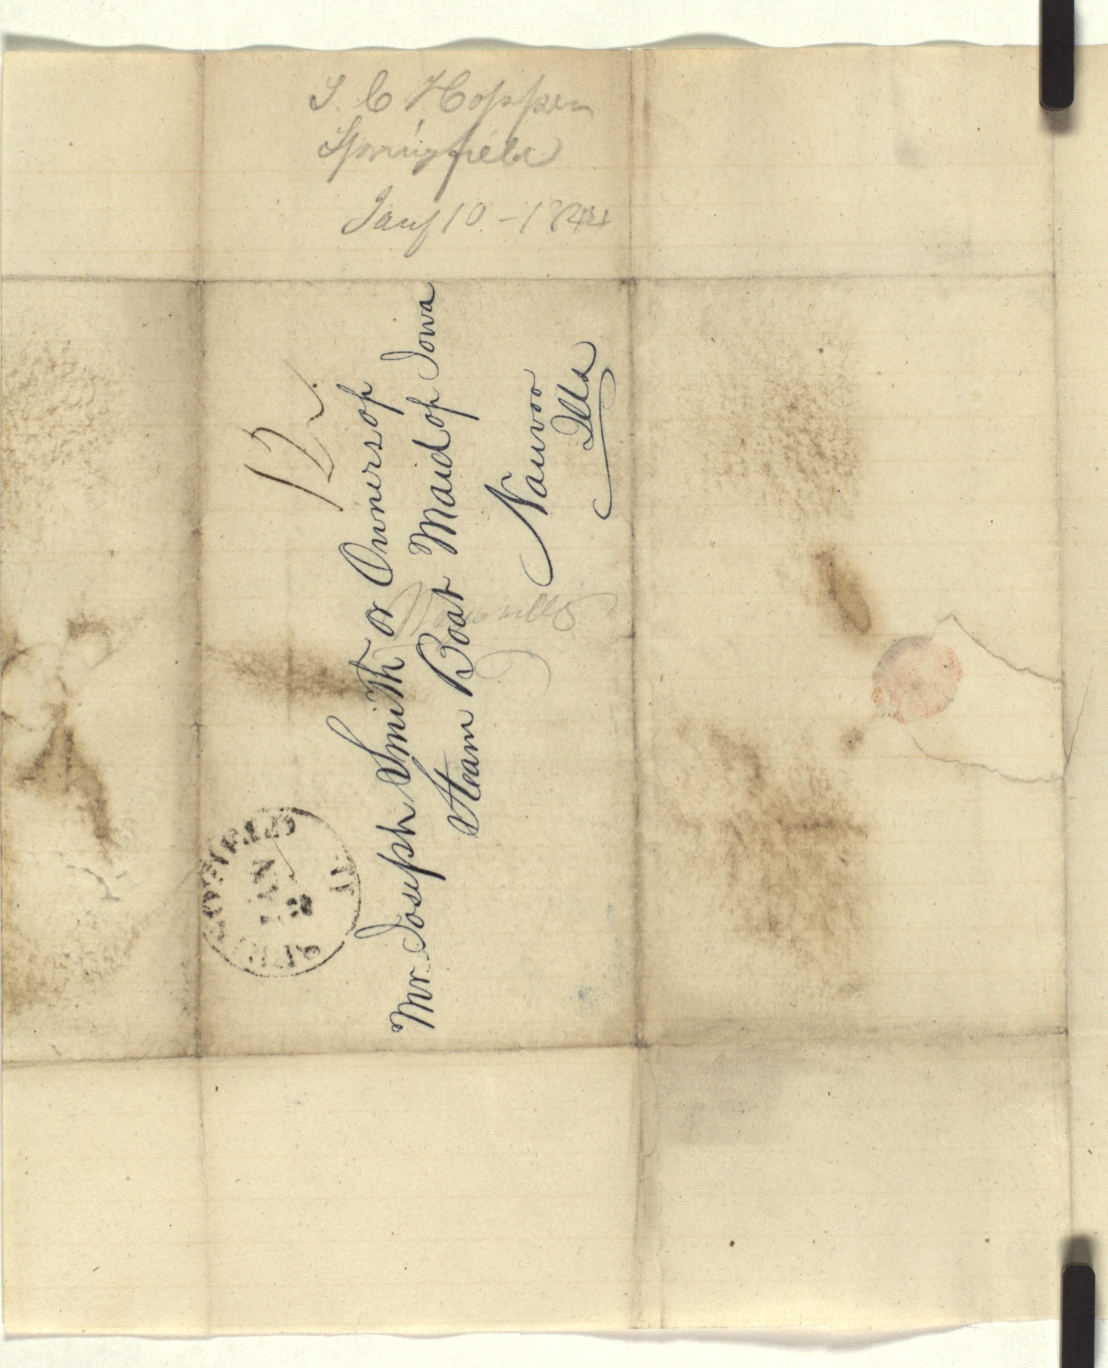 T. C Hopper
Springfield
Jany 10 - 1844
12½
Mr Joseph Smith or Owners of
Steam Boat Maid of Iowa
Nauvoo
Ills
SPRINGFIELD
JAN